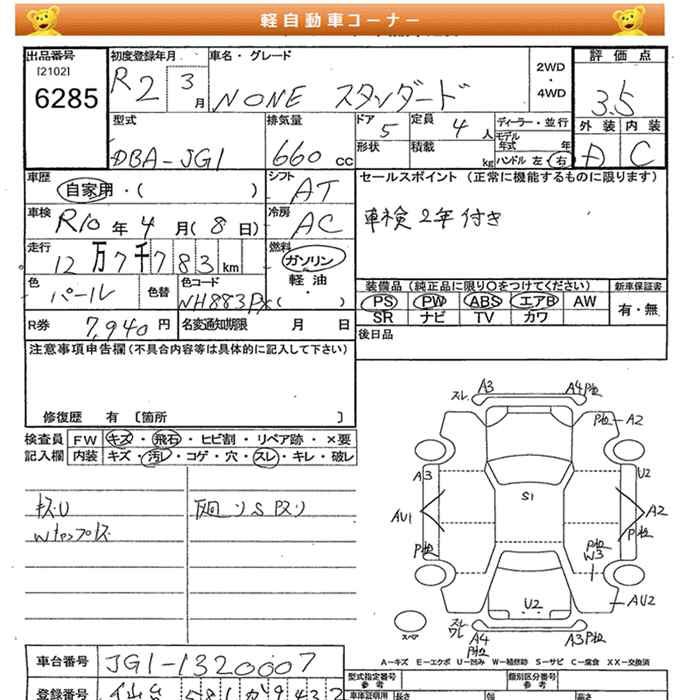 軽自動車コーナー
出品番号
[2102]
6285
初度登録年月
R2 3月
車名・グレード
NONE スタンダード
2WD
・
4WD
評価点
3.5
外装 内装
D C
型式
DBA-JG1
排気量
660 cc
ドア
5
定員
4 人
形状
積載
kg
ディーラー・並行
モデル年式 年
ハンドル 左・右
車歴
自家用・( )
シフト
AT
セールスポイント (正常に機能するものに限ります)
車検2年付き
車検
R10年 4月(8日)
冷房
AC
走行
12万7千783km
燃料
ガソリン
・
軽油
( )
色
パール
色替
色コード
NH883PX
装備品 (純正品に限り○をつけてください)
新車保証書
PS PW ABS エアB AW
有・無
SR ナビ TV カワ
R券 7,940円
名変通知期限 月 日
後日品
注意事項申告欄(不具合内容等は具体的に記入して下さい)
修復歴 有 [箇所 ]
検査員
記入欄
FW キズ・飛石・ヒビ割・リペア跡・×要
内装 キズ・汚レ・コゲ・穴・スレ・キレ・破レ
スレ A3 A4 P他
P他 A2
A3
U2
S1
AU1
A2
P他
P他
P他
W3
AU2
U2
スペア
スレ
ワレ
A4
P他
A3 P他
A-キズ E-エクボ U-凹み W-補修跡 S-サビ C-腐食 XX-交換済
車台番号
JG1-1320007
型式指定番号
参考
類別区分番号
参考
登録番号
仙台 581
車庫証明用
長さ
幅
高さ